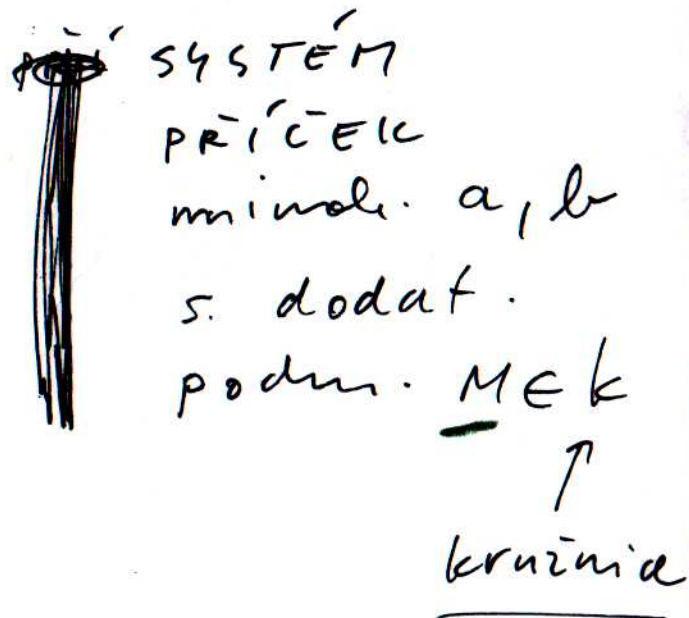 SYSTÉM
PŘÍČEK
mimob. a, b
s. dodat.
podm. M ∈ k
kružnice